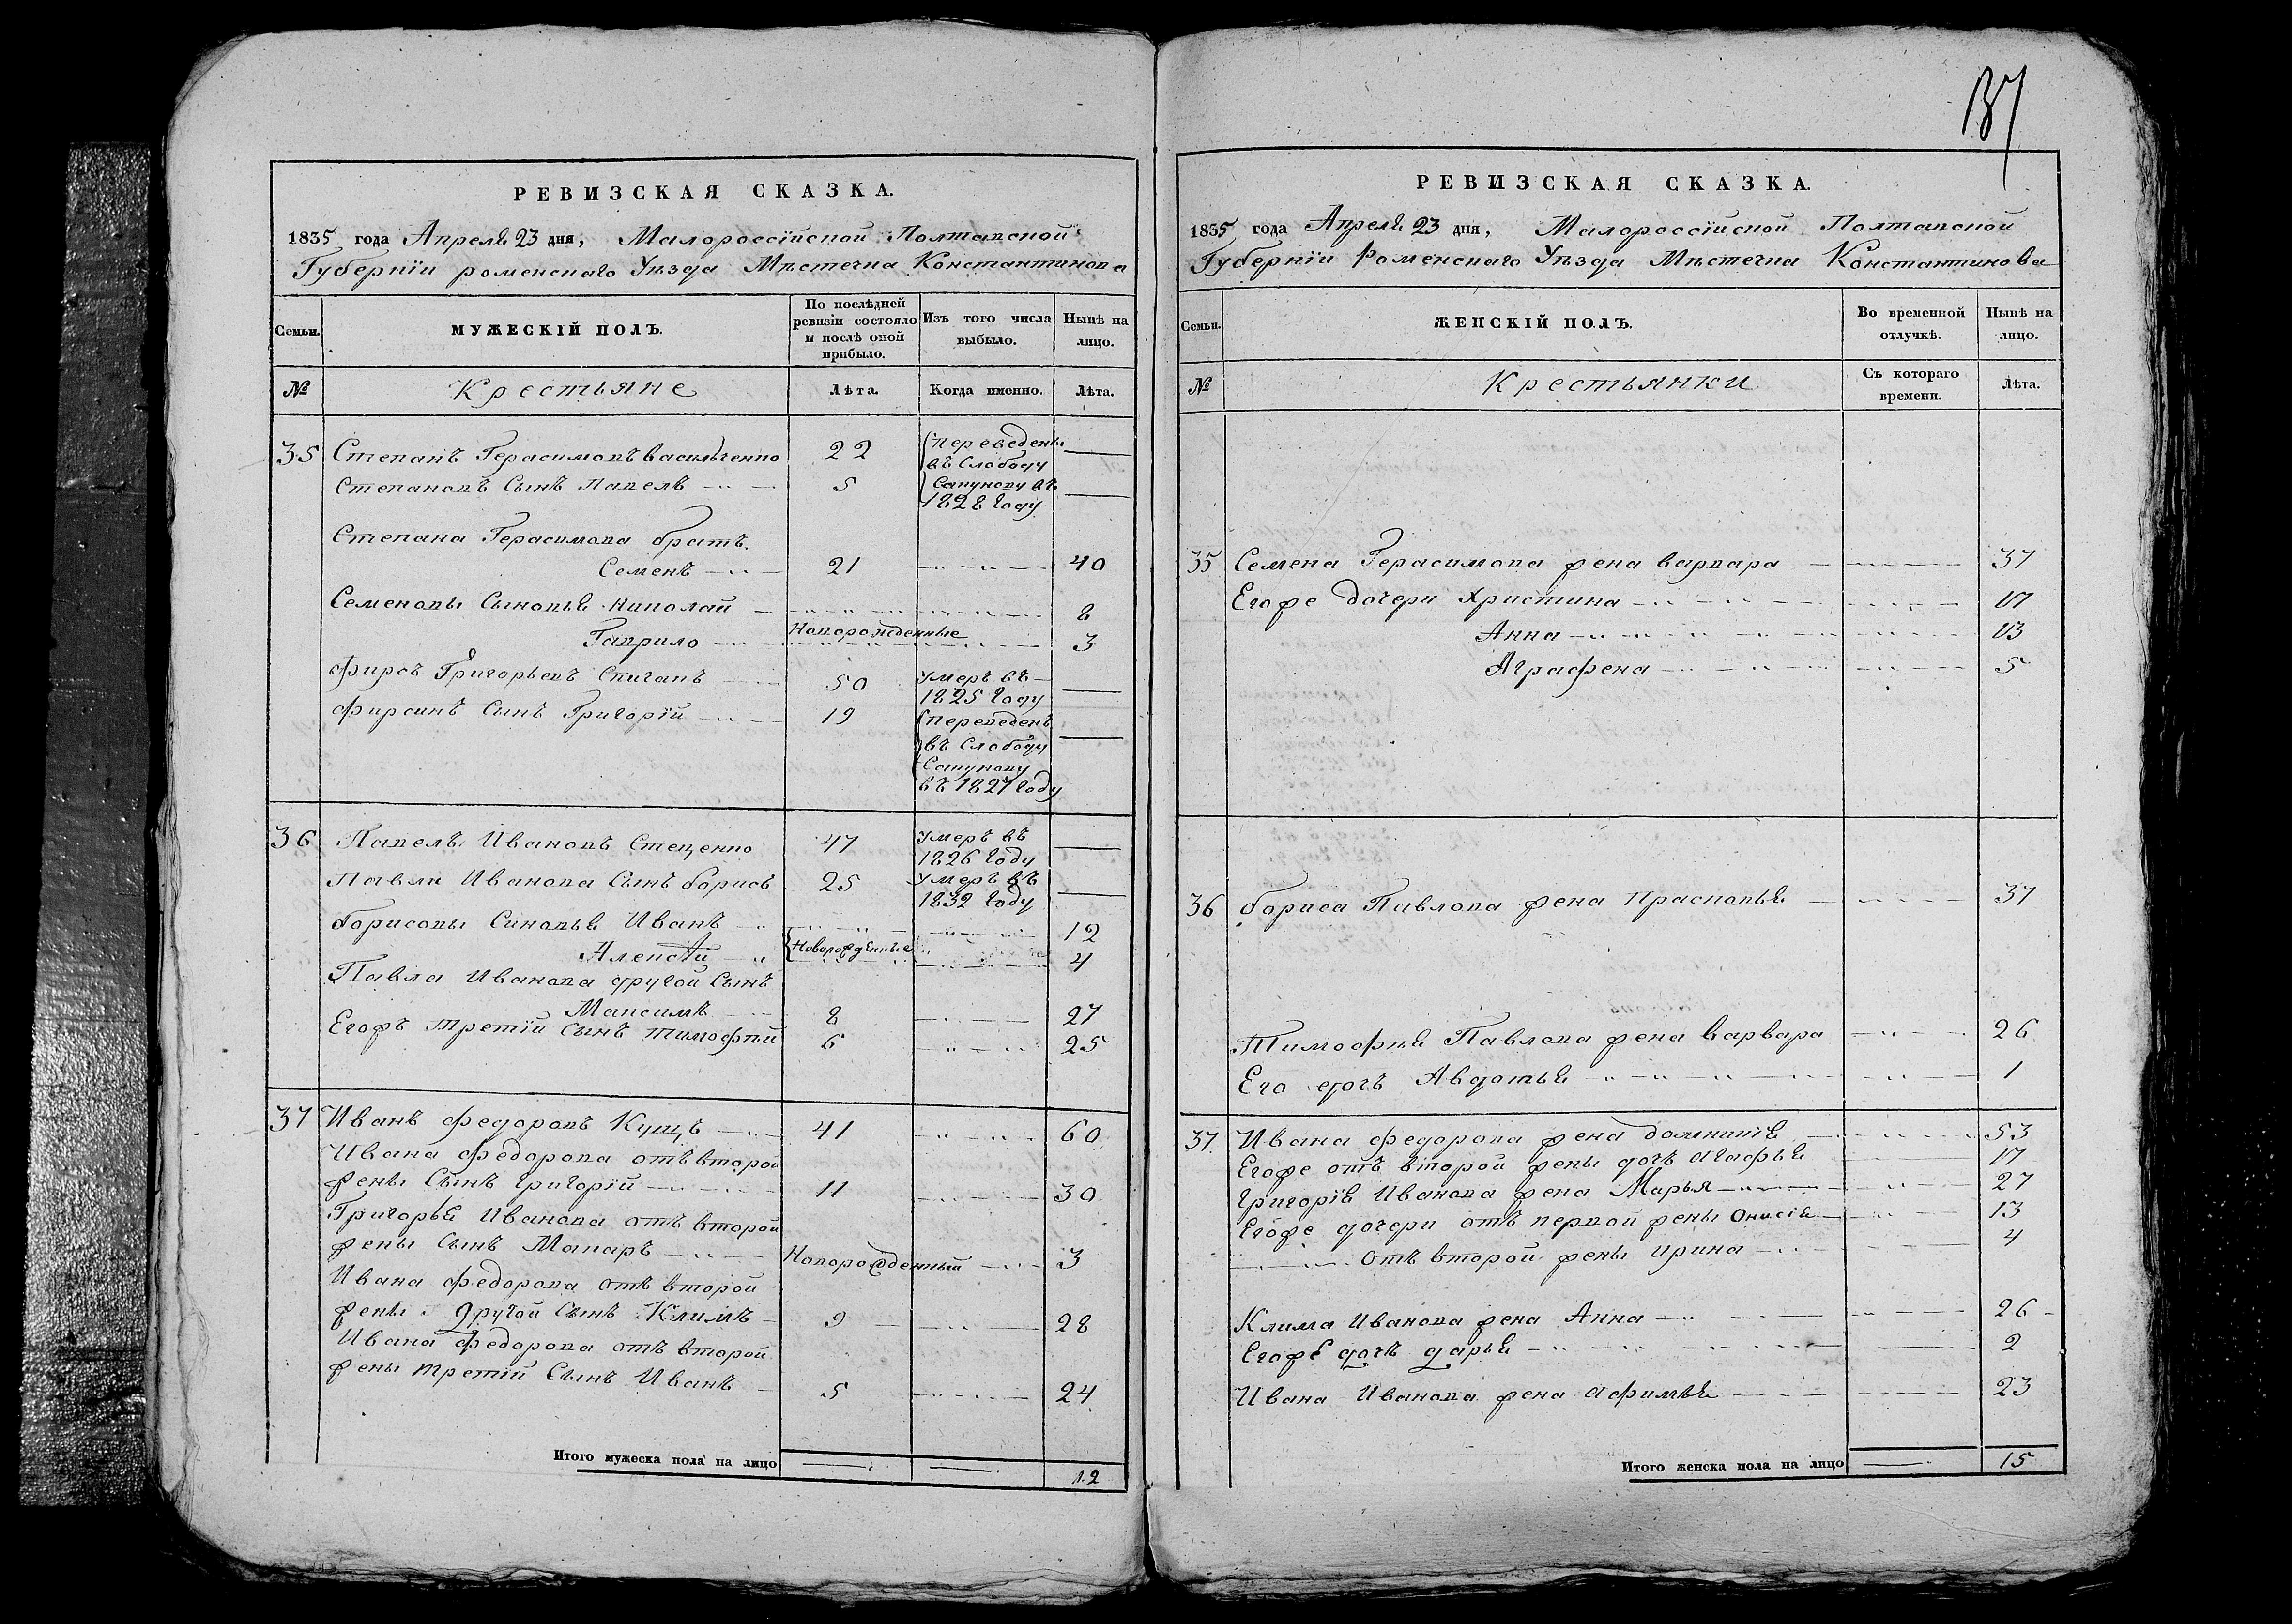 137
РЕВИЗСКАЯ СКАЗКА.
1835 года Апреля 23 дня, Малороссійской Полтавской
Губерніи роменскаго Уѣзда Мѣстечка Константинова
Семьи. МУЖЕСКІЙ ПОЛЪ. По послѣдней ревизіи состояло и послѣ оной прибыло. Изъ того числа выбыло. Нынѣ на лицо.
№ Крестьяне Лѣта. Когда именно. Лѣта.
35 Степанъ Герасимовъ васильченко 22 переведены
въ Слободу
Степановъ Сынъ Павелъ 5 Сапунову въ
1828 году
Степана Герасимова братъ
Семенъ 21 40
Семеновы Сыновья николай 8
Новорожденные
Гаврило 3
Фирсъ Григорьевъ Спичакъ 50 умеръ въ
1825 году
Фирсинъ Сынъ Григорій 19 Переведенъ
въ Слободу
Сапунову
въ 1827 году
36 Павелъ Ивановъ Стеценко 47 умеръ въ
1826 году
Павла Иванова Сынъ борисъ 25 умеръ въ
1832 году
борисовы Синовья Иванъ 12
Новорожденные
Алексѣй 4
Павла Иванова другой Сынъ
Максимъ 8 27
Егожъ третій Сынъ тимофѣй 6 25
37 Иванъ Федоровъ Кущъ 41 60
Ивана Федорова отъ второй
жены Сынъ григорій 11 30
Григорья Иванова отъ второй
жены Сынъ Макаръ Новорожденный 3
Ивана Федорова отъ второй
жены другой Сынъ Климъ 9 28
Ивана Федорова отъ второй
жены третій Сынъ Иванъ 5 24
Итого мужеска пола на лицо 12
РЕВИЗСКАЯ СКАЗКА.
1835 года Апреля 23 дня, Малороссійской Полтавской
Губерніи Роменскаго Уѣзда Мѣстечка Константинова
Семьи. ЖЕНСКІЙ ПОЛЪ. Во временной отлучкѣ. Нынѣ на лицо.
№ Крестьянки Съ котораго времени. Лѣта.
35 Семена Герасимова жена варвара 37
Егоже дочери христина 17
Анна 13
Аграфена 5
36 бориса Павлова жена Прасковья 37
Тимофѣя Павлова жена варвара 26
Его дочь Авдотья 1
37 Ивана Федорова жена домникія 53
Егоже отъ второй жены дочь агафья 17
григорія Иванова жена Марья 27
Егоже дочери отъ первой жены Онисія 13
отъ второй жены ирина 4
Клима Иванова жена Анна 26
Егоже дочь дарья 2
Ивана Иванова жена афимья 23
Итого женска пола на лицо 15